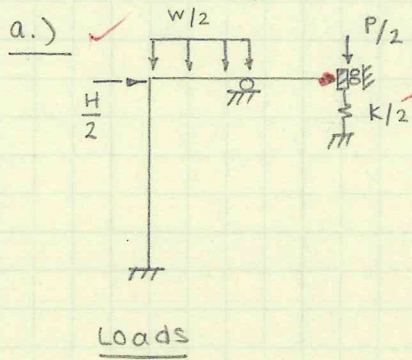 a.)
W/2
P/2
H/2
K/2
Loads